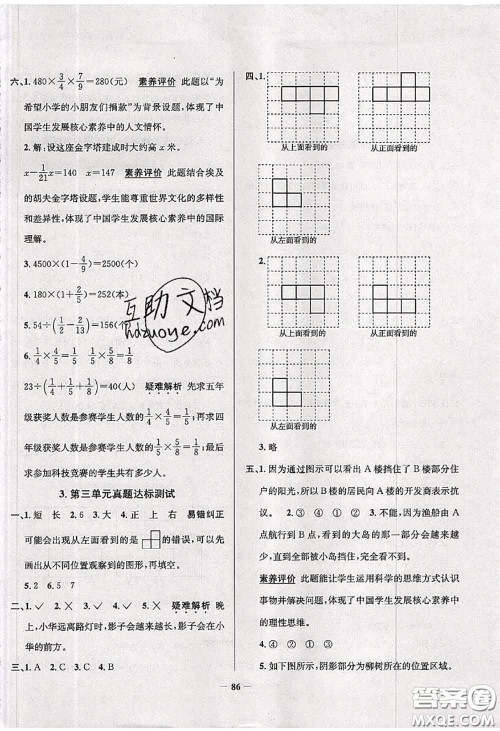 六、1. 480×3/4×7/9=280(元) 素养评价 此题以“为
希望小学的小朋友们捐款”为背景设题,体现了中
国学生发展核心素养中的人文情怀。
2. 解:设这座金字塔建成时大约高 x 米。
x-1/21x=140 x=147 素养评价 此题结合埃及
的胡夫金字塔设题,学生能尊重世界文化的多样性
和差异性,体现了中国学生发展核心素养中的国际
理解。
3. 4500×(1-4/9)=2500(个)
4. 180×(1+2/5)=252(本)
5. 54÷(1/2-2/13)=156(个)
6. 1/4×4/5=1/5 1/5×5/8=1/8
23÷(1/4+1/5+1/8)=40(人) 疑难解析 先求五年
级获奖人数是参赛学生人数的1/4×4/5=1/5,再求四
年级获奖人数是参赛学生人数的1/5×5/8=1/8,最后
求参加科技竞赛的学生共有多少人。
3. 第三单元真题达标测试
一、1. 短 长 2. 6 3. 大 4. 正 上 右 易错纠正
可能会出现从左面看到的是的错误,可以先
画出从不同位置观察到的图形,再填空。
5. 2 6. 5 7
二、1. ✓ 2. × 3. ✓ 4. ✓ 5. × 疑难解析 晚
上,小华远离路灯时,影子会越来越长,影子也会越来越
三、1. A 2. C 3. B 4. C 5. C
四、1.
从上面看到的 从正面看到的
从左面看到的
2.
从上面看到的 从正面看到的
从左面看到的
3. 略
五、1. 因为通过图示可以看出 A 楼挡住了 B 楼部分住户
的阳光,所以 B 楼的居民向 A 楼的开发商表示抗议。
2. ④ ① ③ ② 3. 图示略。因为渔船由 A
点航行到 B 点,看到的大岛的那一部分会越来越
少,甚至会被小岛挡住,完全看不到。
素养评价 此题能让学生运用科学的思维方式认识
事物并解决问题,体现了中国学生发展核心素养中
的理性思维。
4. ④ ② ① ③
5. 如下图所示,阴影部分为柳树所在的位置区域。
86
互助文档
hdzuoye.com
答案圈
MXQE.COM